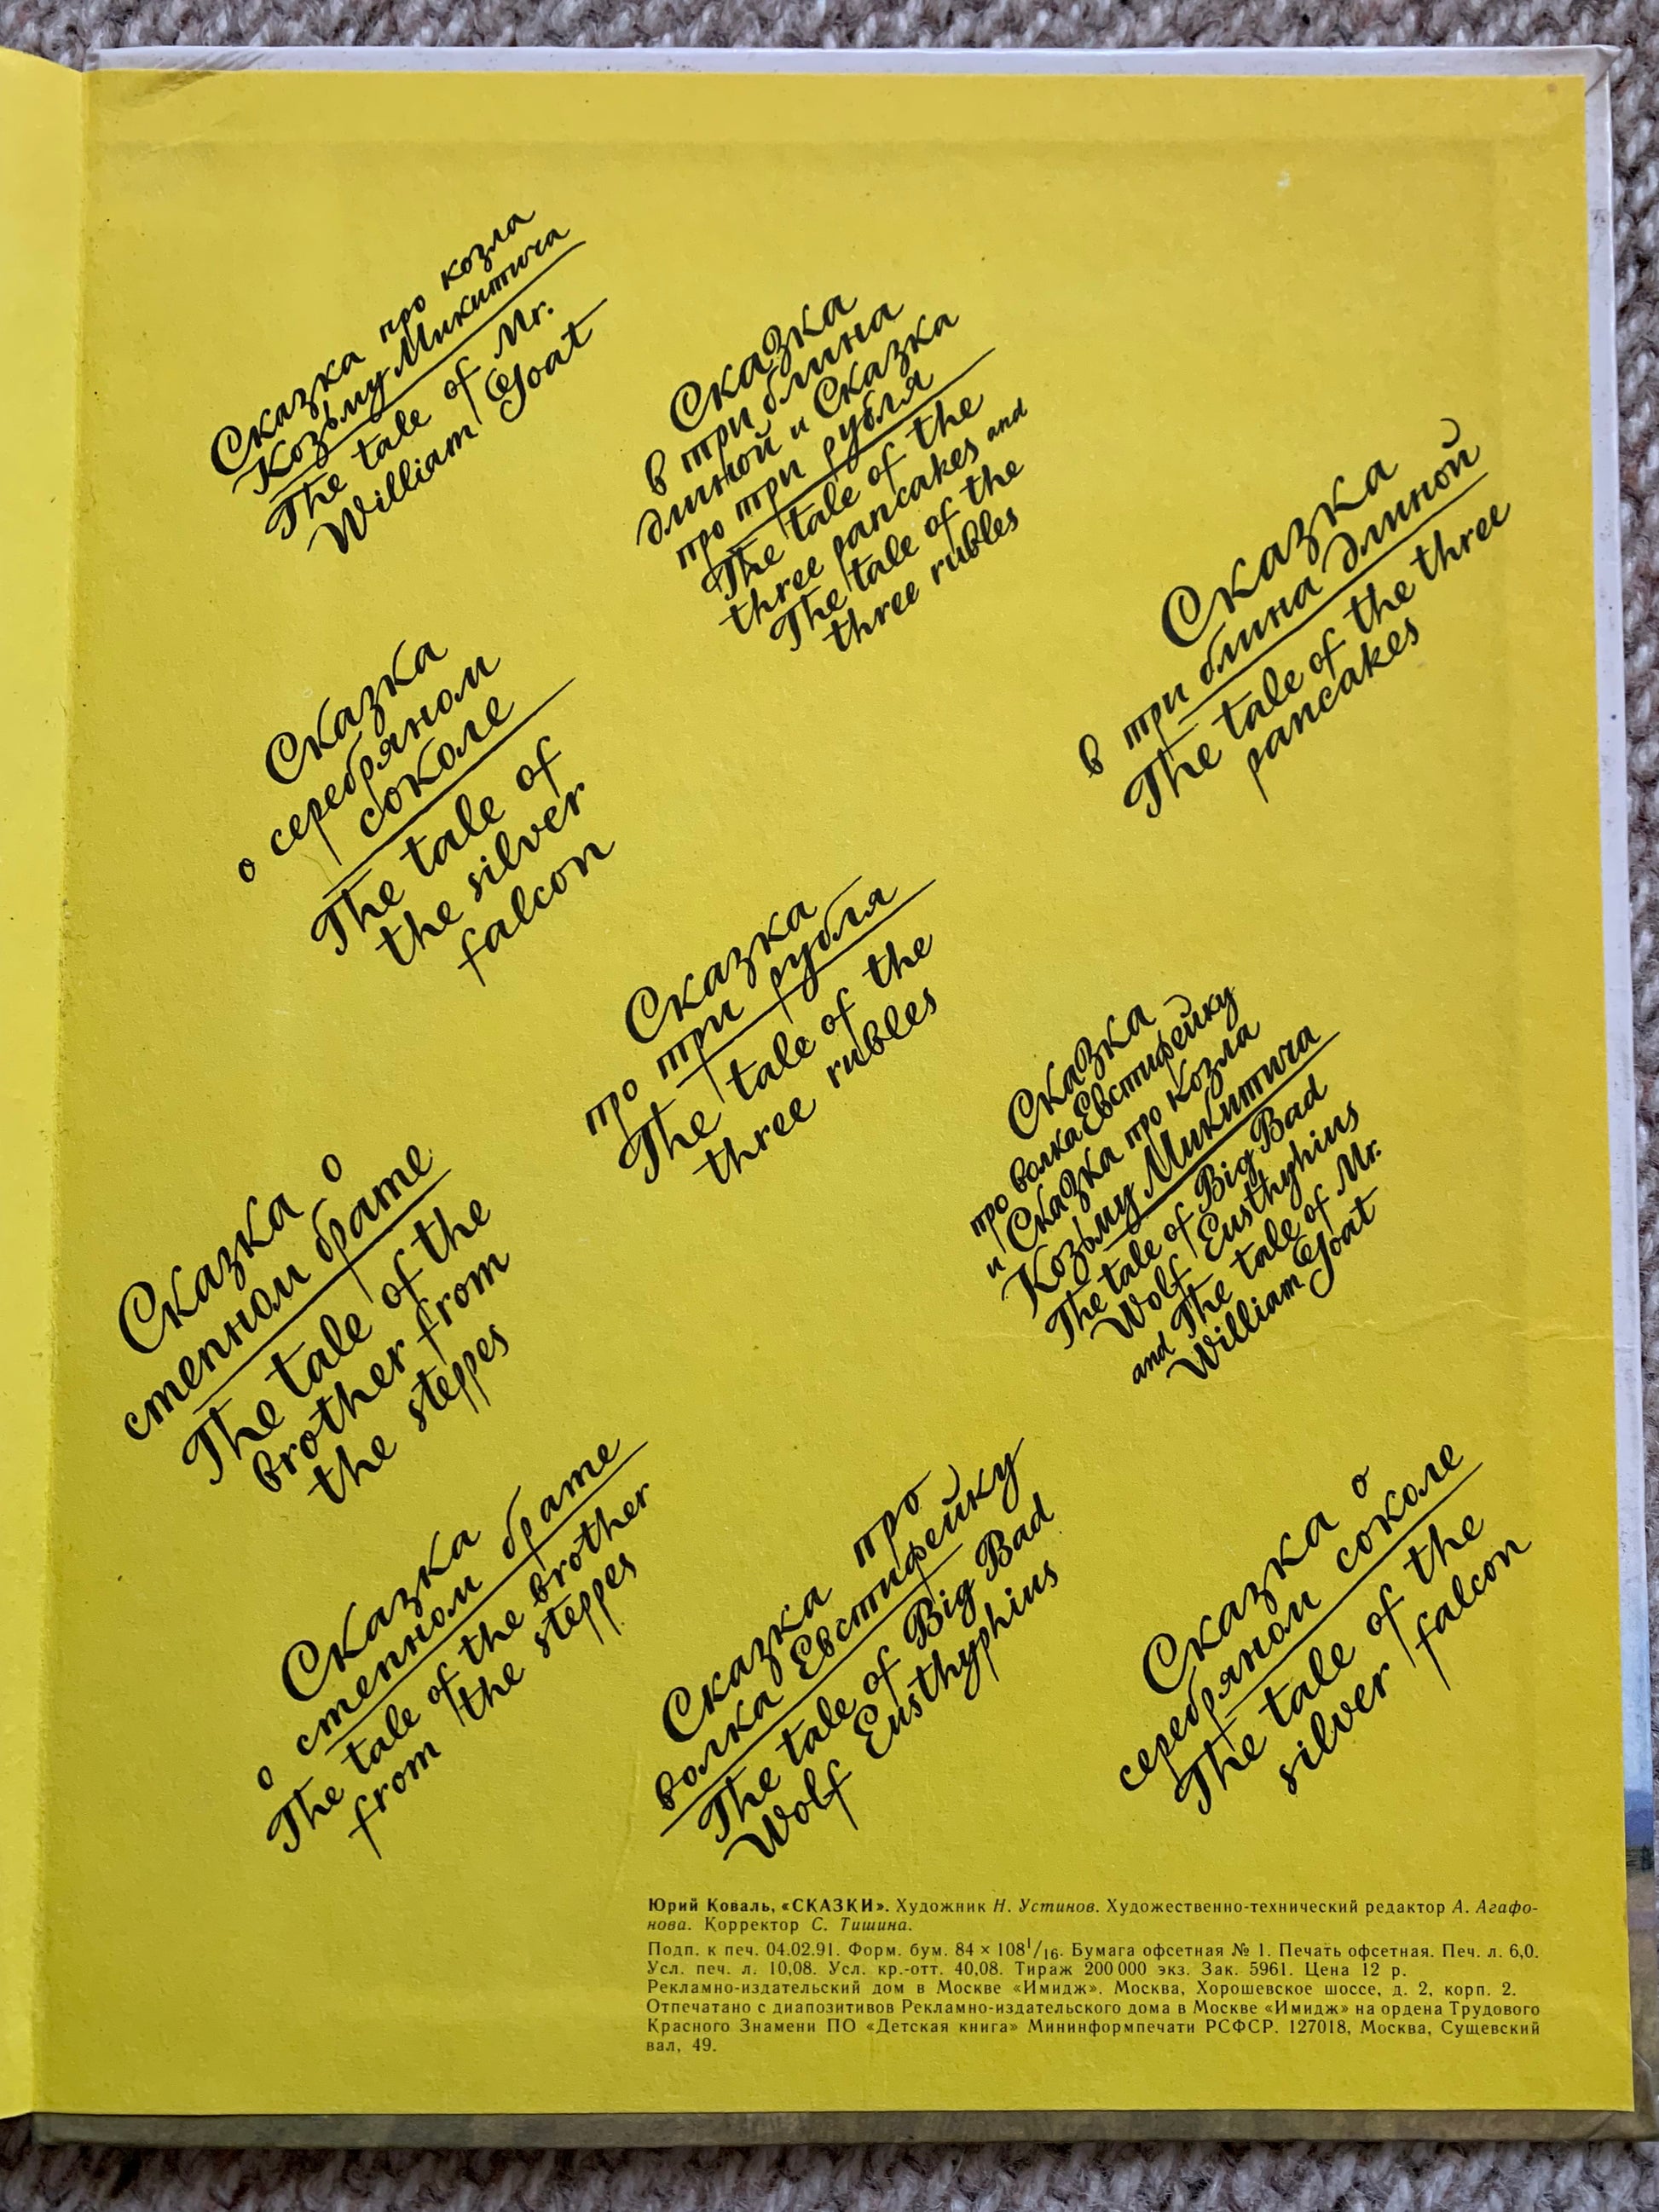 Сказка про козла
Козьму Микитича
The tale of Mr.
William Goat
Сказка
в три блина
длиной и Сказка
про три рубля
The tale of the
three pancakes and
The tale of the
three rubles
Сказка
в три блина длиной
The tale of the three
pancakes
Сказка
о серебряном
соколе
The tale of
the silver
falcon
Сказка
про три рубля
The tale of the
three rubles
Сказка
про волка Евстифейку
и Сказка про козла
Козьму Микитича
The tale of Big Bad
Wolf Eusthyhius
and The tale of Mr.
William Goat
Сказка о
степном брате
The tale of the
brother from
the steppes
Сказка
о степном брате
The tale of the brother
from the steppes
Сказка про
волка Евстифейку
The tale of Big Bad
Wolf Eusthyphius
Сказка о
серебряном соколе
The tale of the
silver falcon
Юрий Коваль, «СКАЗКИ». Художник Н. Устинов. Художественно-технический редактор А. Агафо-
нова. Корректор С. Тишина.
Подп. к печ. 04.02.91. Форм. бум. 84 × 108¹/₁₆. Бумага офсетная № 1. Печать офсетная. Печ. л. 6,0.
Усл. печ. л. 10,08. Усл. кр.-отт. 40,08. Тираж 200 000 экз. Зак. 5961. Цена 12 р.
Рекламно-издательский дом в Москве «Имидж». Москва, Хорошевское шоссе, д. 2, корп. 2.
Отпечатано с диапозитивов Рекламно-издательского дома в Москве «Имидж» на ордена Трудового
Красного Знамени ПО «Детская книга» Мининформпечати РСФСР. 127018, Москва, Сущевский
вал, 49.